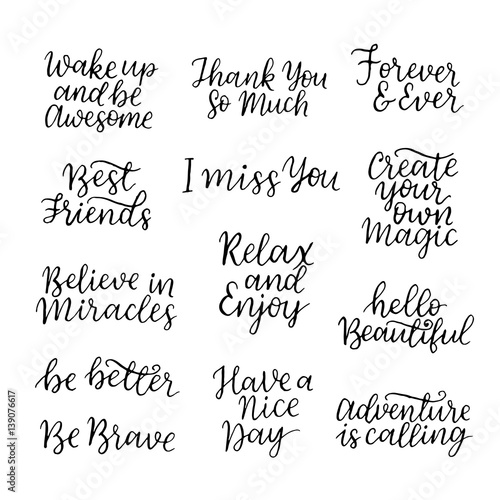 Wake up
and be
Awesome
Thank You
So Much
Forever
& Ever
Best
Friends
I miss You
Create
your
own
Magic
Believe in
Miracles
Relax
and
Enjoy
hello
Beautiful
be better
Be Brave
Have a
Nice
Day
Adventure
is calling
139076617
Adobe Stock